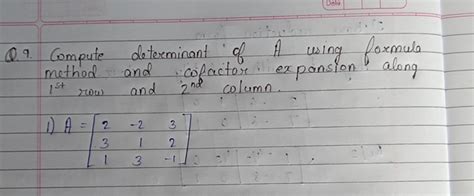 Date
Q.9. Compute determinant of A using formula
method and cofactor expansion along
1st row and 2nd column.
1) A = [ 2 -2 3
3 1 2
1 3 -1 ]